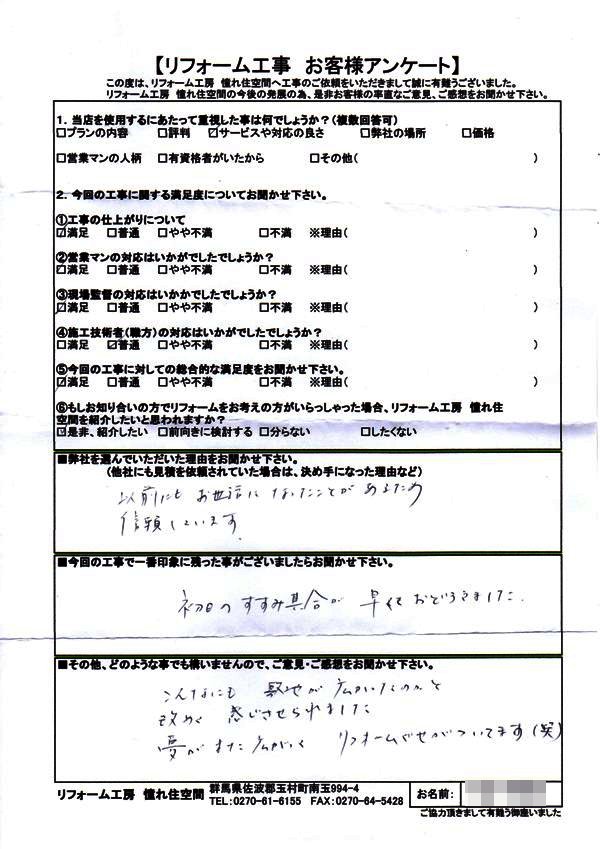 【リフォーム工事　お客様アンケート】
この度は、リフォーム工房　憧れ住空間へ工事のご依頼をいただきまして誠に有難うございました。
リフォーム工房　憧れ住空間の今後の発展の為、是非お客様の率直なご意見、ご感想をお聞かせ下さい。
1．当店を使用するにあたって重視した事は何でしょうか？（複数回答可）
□プランの内容　□評判　☑サービスや対応の良さ　□弊社の場所　□価格
□営業マンの人柄　□有資格者がいたから　□その他（　）
2．今回の工事に関する満足度についてお聞かせ下さい。
①工事の仕上がりについて
☑満足　□普通　□やや不満　□不満　※理由（　）
②営業マンの対応はいかがでしたでしょうか？
☑満足　□普通　□やや不満　□不満　※理由（　）
③現場監督の対応はいかかでしたでしょうか？
☑満足　□普通　□やや不満　□不満　※理由（　）
④施工技術者（職方）の対応はいかがでしたでしょうか？
□満足　☑普通　□やや不満　□不満　※理由（　）
⑤今回の工事に対しての総合的な満足度をお聞かせ下さい。
☑満足　□普通　□やや不満　□不満　※理由（　）
⑥もしお知り合いの方でリフォームをお考えの方がいらっしゃった場合、リフォーム工房　憧れ住
空間を紹介したいと思われますか？
☑是非、紹介したい　□前向きに検討する　□分らない　□したくない
■弊社を選んでいただいた理由をお聞かせ下さい。
（他社にも見積を依頼されていた場合は、決め手になった理由など）
以前にもお世話になったことがあるため
信頼しています
■今回の工事で一番印象に残った事がございましたらお聞かせ下さい。
初日のすすみ具合が　早くおどろきました.
■その他、どのような事でも構いませんので、ご意見・ご感想をお聞かせ下さい。
こんなにも　敷地が広かったのかと
改めて　感じさせられました
夢がまた広がって　リフォームぐせがついてます（笑）
リフォーム工房　憧れ住空間
群馬県佐波郡玉村町南玉994-4
TEL：0270-61-6155　FAX：0270-64-5428
お名前：
ご協力頂きまして有難う御座いました